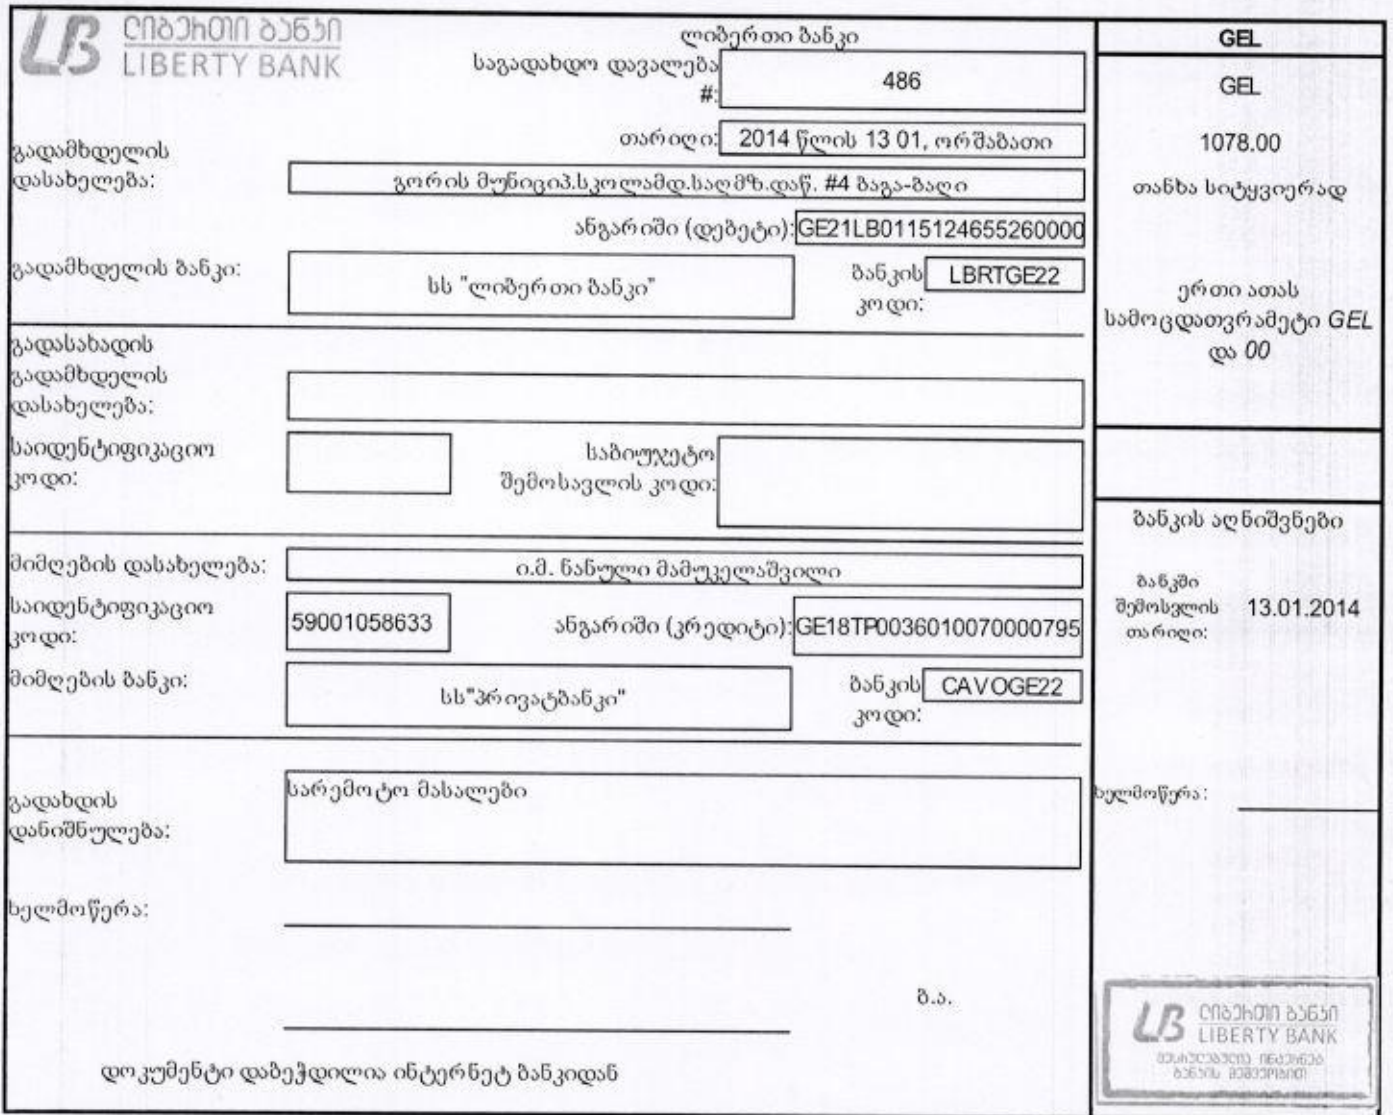 ლიბერთი ბანკი
LIBERTY BANK
ლიბერთი ბანკი
საგადახდო დავალება #: 486
თარიღი: 2014 წლის 13 01, ორშაბათი
გადამხდელის
დასახელება: გორის მუნიციპ.სკოლამდ.საღმზ.დაწ. #4 ბაგა-ბაღი
ანგარიში (დებეტი): GE21LB0115124655260000
გადამხდელის ბანკი: სს "ლიბერთი ბანკი"
ბანკის კოდი: LBRTGE22
გადასახადის
გადამხდელის
დასახელება:
საიდენტიფიკაციო
კოდი:
საბიუჯეტო
შემოსავლის კოდი:
მიმღების დასახელება: ი.მ. ნანული მამუკელაშვილი
საიდენტიფიკაციო
კოდი: 59001058633
ანგარიში (კრედიტი): GE18TP0036010070000795
მიმღების ბანკი: სს"პრივატბანკი"
ბანკის კოდი: CAVOGE22
გადახდის
დანიშნულება: სარემოტო მასალები
ხელმოწერა:
ბ.ა.
დოკუმენტი დაბეჭდილია ინტერნეტ ბანკიდან
GEL
GEL
1078.00
თანხა სიტყვიერად
ერთი ათას
სამოცდათვრამეტი GEL
და 00
ბანკის აღნიშვნები
ბანკში
შემოსვლის
თარიღი: 13.01.2014
ხელმოწერა:
ლიბერთი ბანკი
LIBERTY BANK